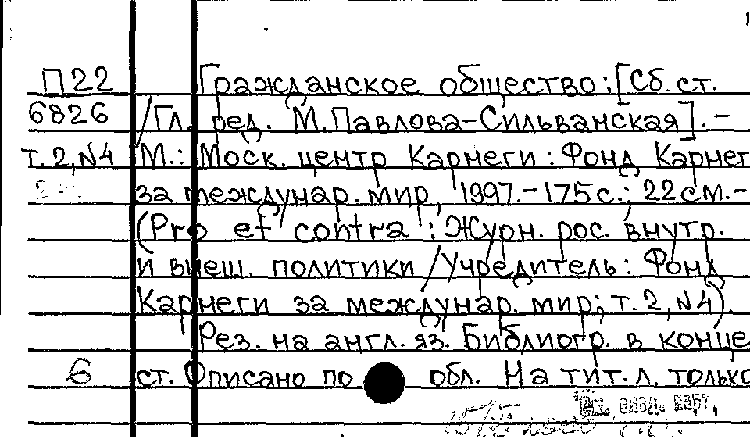 П22 Гражданское общество: [Сб. ст.
6826 /Гл. ред. М. Павлова-Сильванская]. -
т.2, N4 М.: Моск. центр Карнеги: Фонд Карнег
за междунар. мир, 1997.-175с.; 22см.-
(Pro et contra: Журн. рос. внутр.
и внеш. политики /Учредитель: Фонд
Карнеги за междунар. мир; т.2, N4).
Рез. на англ. яз. Библиогр. в конце
6 ст. Описано по обл. На тит. л. только